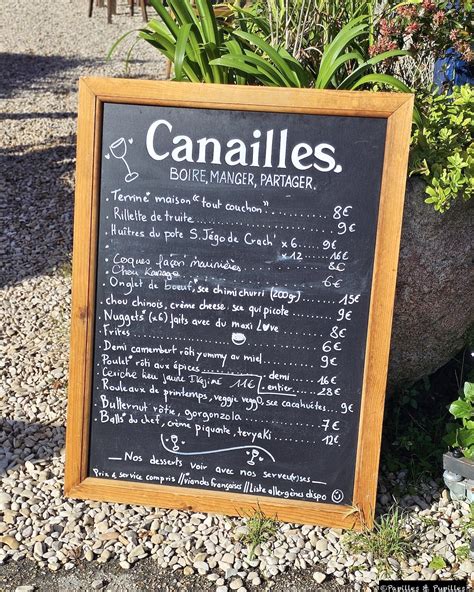 Canailles.
BOIRE, MANGER, PARTAGER.
. Terrine maison "tout couchon" ........ 8€
. Rillette de truite ........ 9€
. Huîtres du pote S. Jégo de Crach' x 6 ..... 9€
x 12 ..... 16€
. Coques façon marinière ........ 8€
. Chou Kanage ........ 6€
. Onglet de boeuf, sce chimichurri (200g) ..... 15€
. chou chinois, crème cheese, sce qui picote ..... 9€
. Nuggets (x6) faits avec du maxi Love ........ 8€
. Frites ........ 6€
. Demi camembert rôti yummy au miel ........ 9€
. Poulet rôti aux épices ........ demi ..... 16€
entier ..... 28€
. Ceviche lieu jaune Ikejime 11€
. Rouleaux de printemps, veggie vegg0, sce cacahuètes .. 9€
. Butternut rôtie, gorgonzola ........ 7€
. Balls du chef, crème piquante, teryaki ........ 12€
_ Nos desserts voir avec nos serveur(ses) _
Prix & service compris // viandes françaises // Liste allergènes dispo
©Papilles & Pupilles